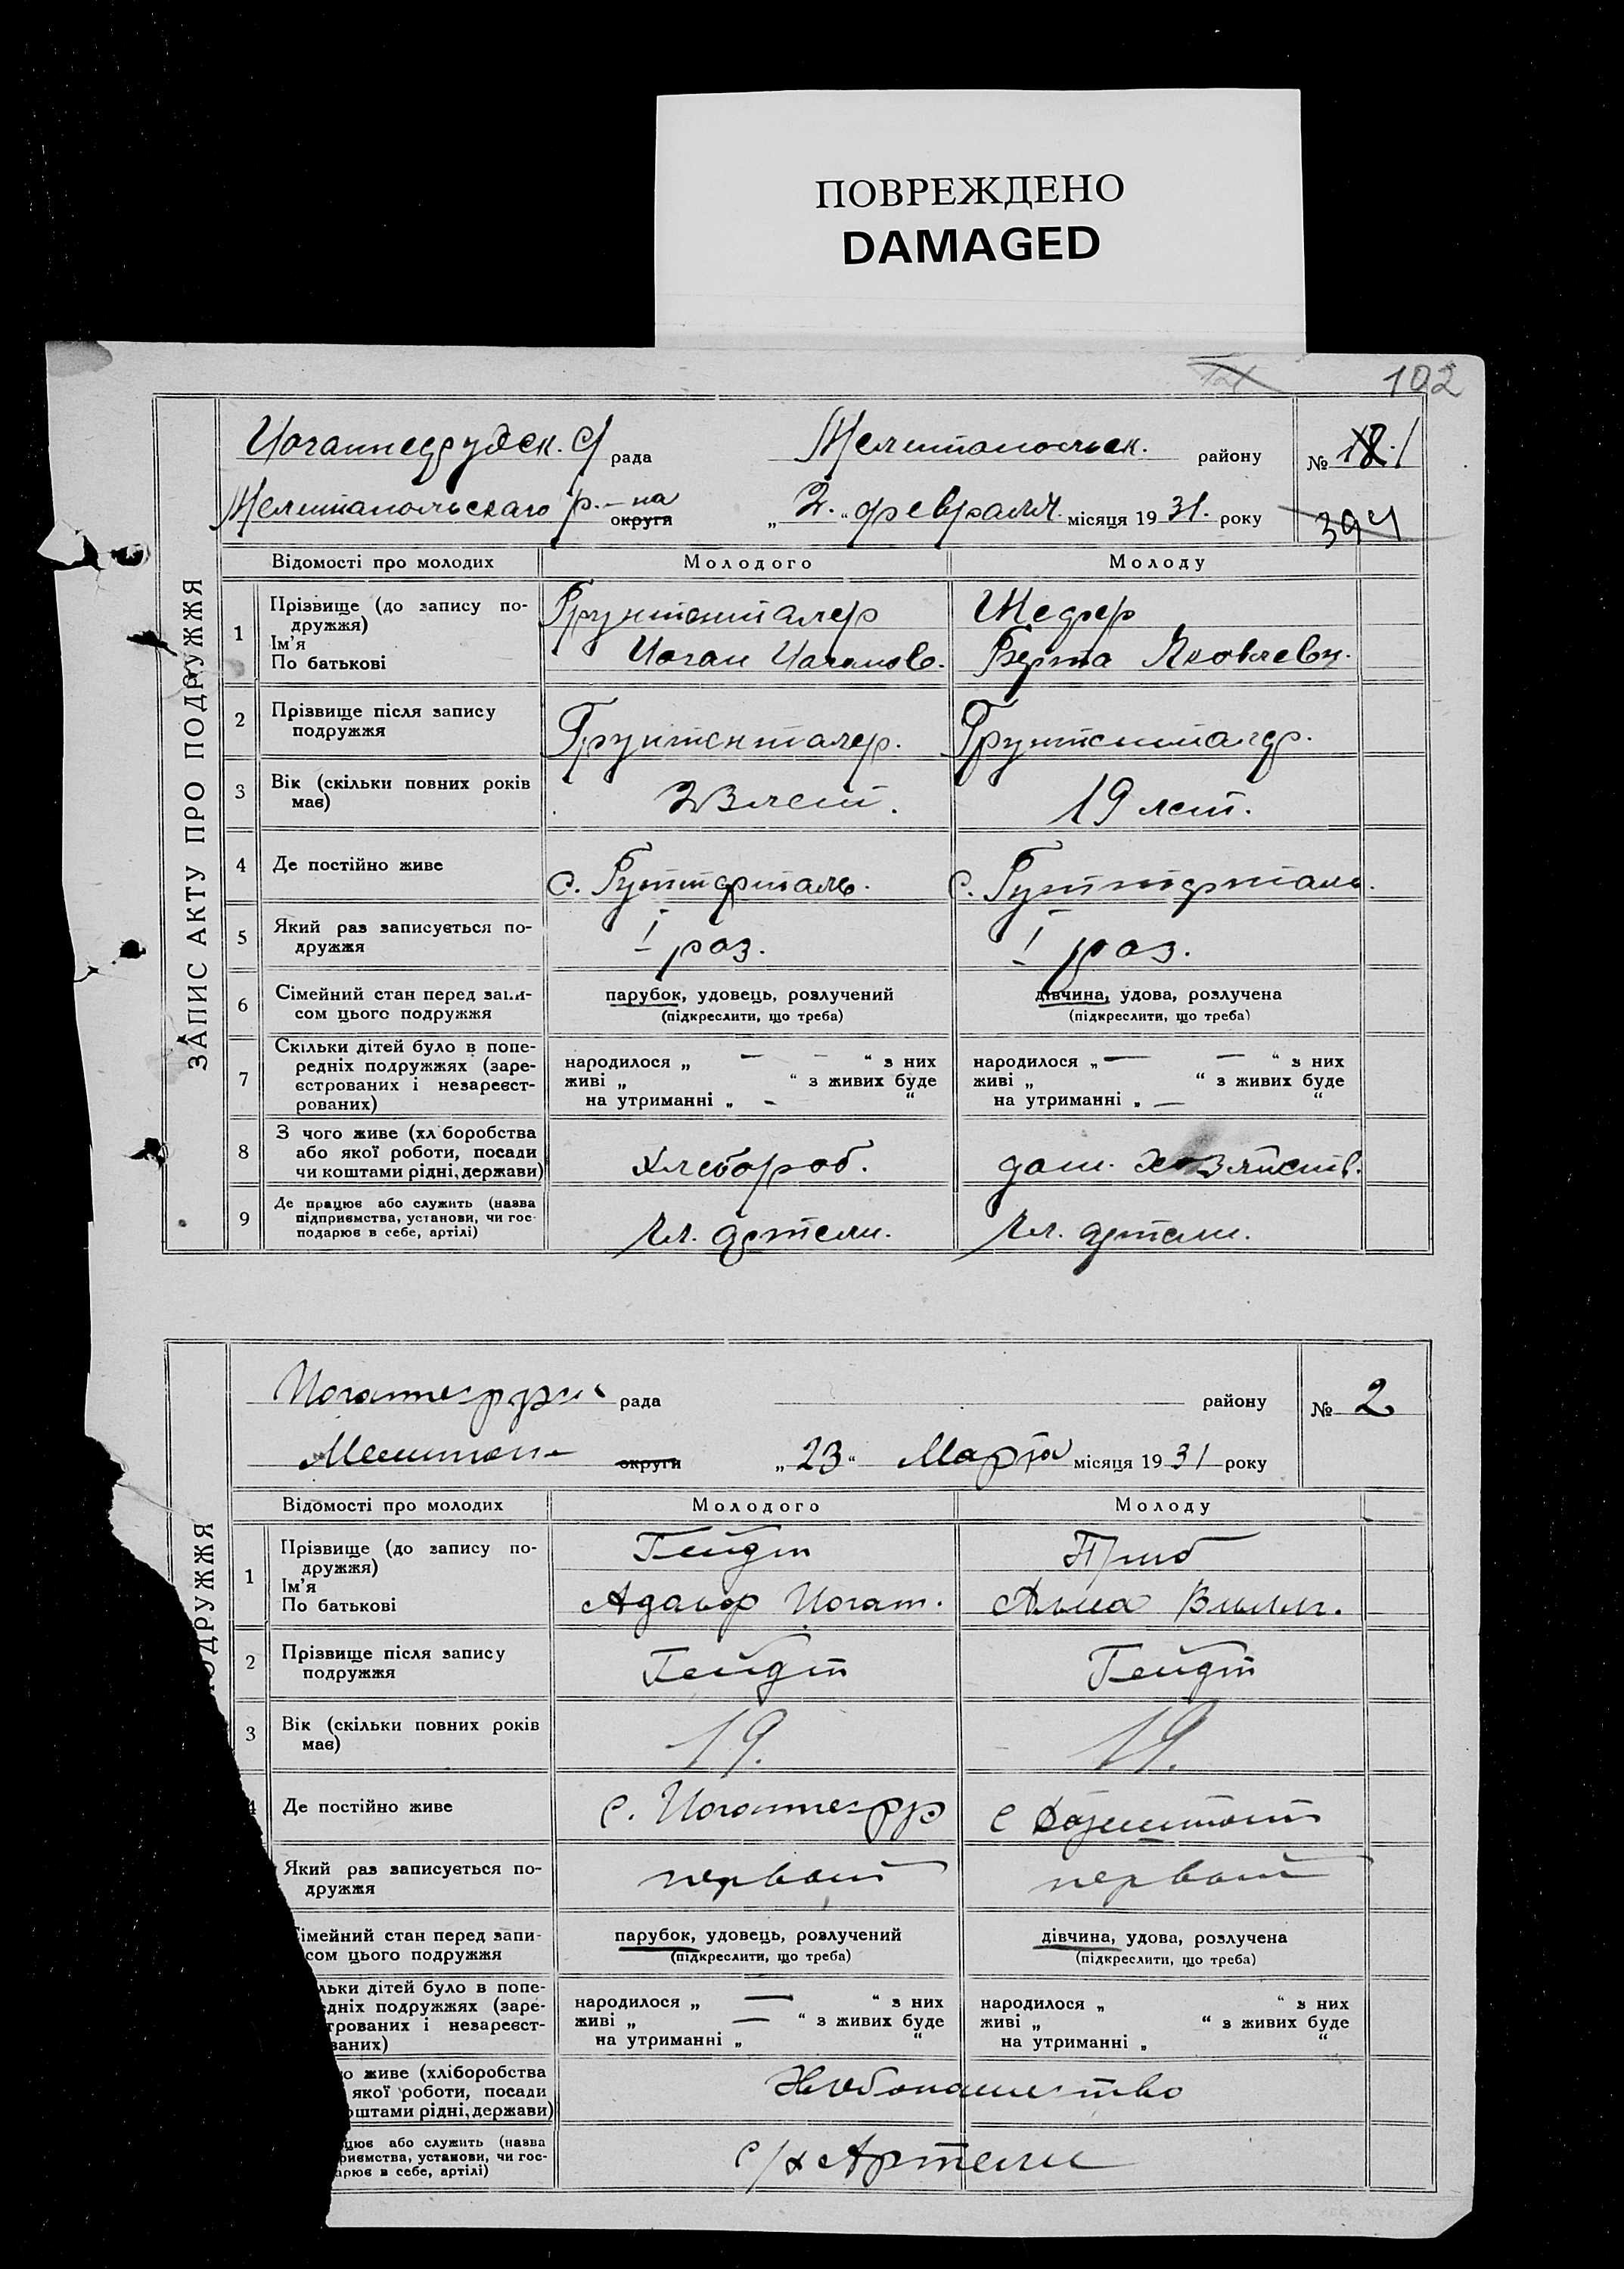 ПОВРЕЖДЕНО
DAMAGED
102
ЗАПИС АКТУ ПРО ПОДРУЖЖЯ
Иоганнесрудск. С/ рада Мелитопольск. району № 1
Мелитопольскаго р.-на округи „2.“ февраля місяця 1931. року 394
Відомості про молодих Молодого Молоду
1 Прізвище (до запису по-
дружжя)
Ім'я
По батькові
Грунтенталер
Иоган Иоганов.
Шефер
Берта Яковлевн.
2 Прізвище після запису
подружжя
Грунтенталер. Грунтенталер.
3 Вік (скільки повних років
має)
23 лет. 19 лет.
4 Де постійно живе
с. Гуттерталь. с. Гуттерталь.
5 Який раз записується по-
дружжя
I раз. I раз.
6 Сімейний стан перед запи-
сом цього подружжя
парубок, удовець, розлучений
(підкреслити, що треба)
дівчина, удова, розлучена
(підкреслити, що треба)
7 Скільки дітей було в попе-
редніх подружжях (заре-
єстрованих і незареєст-
рованих)
народилося „ — — “ з них
живі „ “ з живих буде
на утриманні „ - “
народилося „ — — “ з них
живі „ “ з живих буде
на утриманні „ — “
8 З чого живе (хл боробства
або якої роботи, посади
чи коштами рідні, держави)
хлебороб. дом. хозяйств.
9 Де працює або служить (назва
підприємства, установи, чи гос-
подарює в себе, артілі)
Чл. артели. Чл. артели.
ОДРУЖЖЯ
рада району № 2
округи „23“ Марта місяця 1931 року
Відомості про молодих Молодого Молоду
1 Прізвище (до запису по-
дружжя)
Ім'я
По батькові
Гейдт
Адольф Иоган.
Приб
Альма Вильг.
2 Прізвище після запису
подружжя
Гейдт Гейдт
3 Вік (скільки повних років
має)
19. 19.
4 Де постійно живе
с. с
Який раз записується по-
дружжя
первый первый
імейний стан перед запи-
сом цього подружжя
парубок, удовець, розлучений
(підкреслити, що треба)
дівчина, удова, розлучена
(підкреслити, що треба)
льки дітей було в попе-
едніх подружжях (заре-
трованих і незареєст-
ваних)
народилося „ — “ з них
живі „ — “ з живих буде
на утриманні „ “
народилося „ “ з них
живі „ “ з живих буде
на утриманні „ “
о живе (хліборобства
якої роботи, посади
оштами рідні, держави)
Хлебопашество
цює або служить (назва
риємства, установи, чи гос-
арює в себе, артілі)
с/х Артели